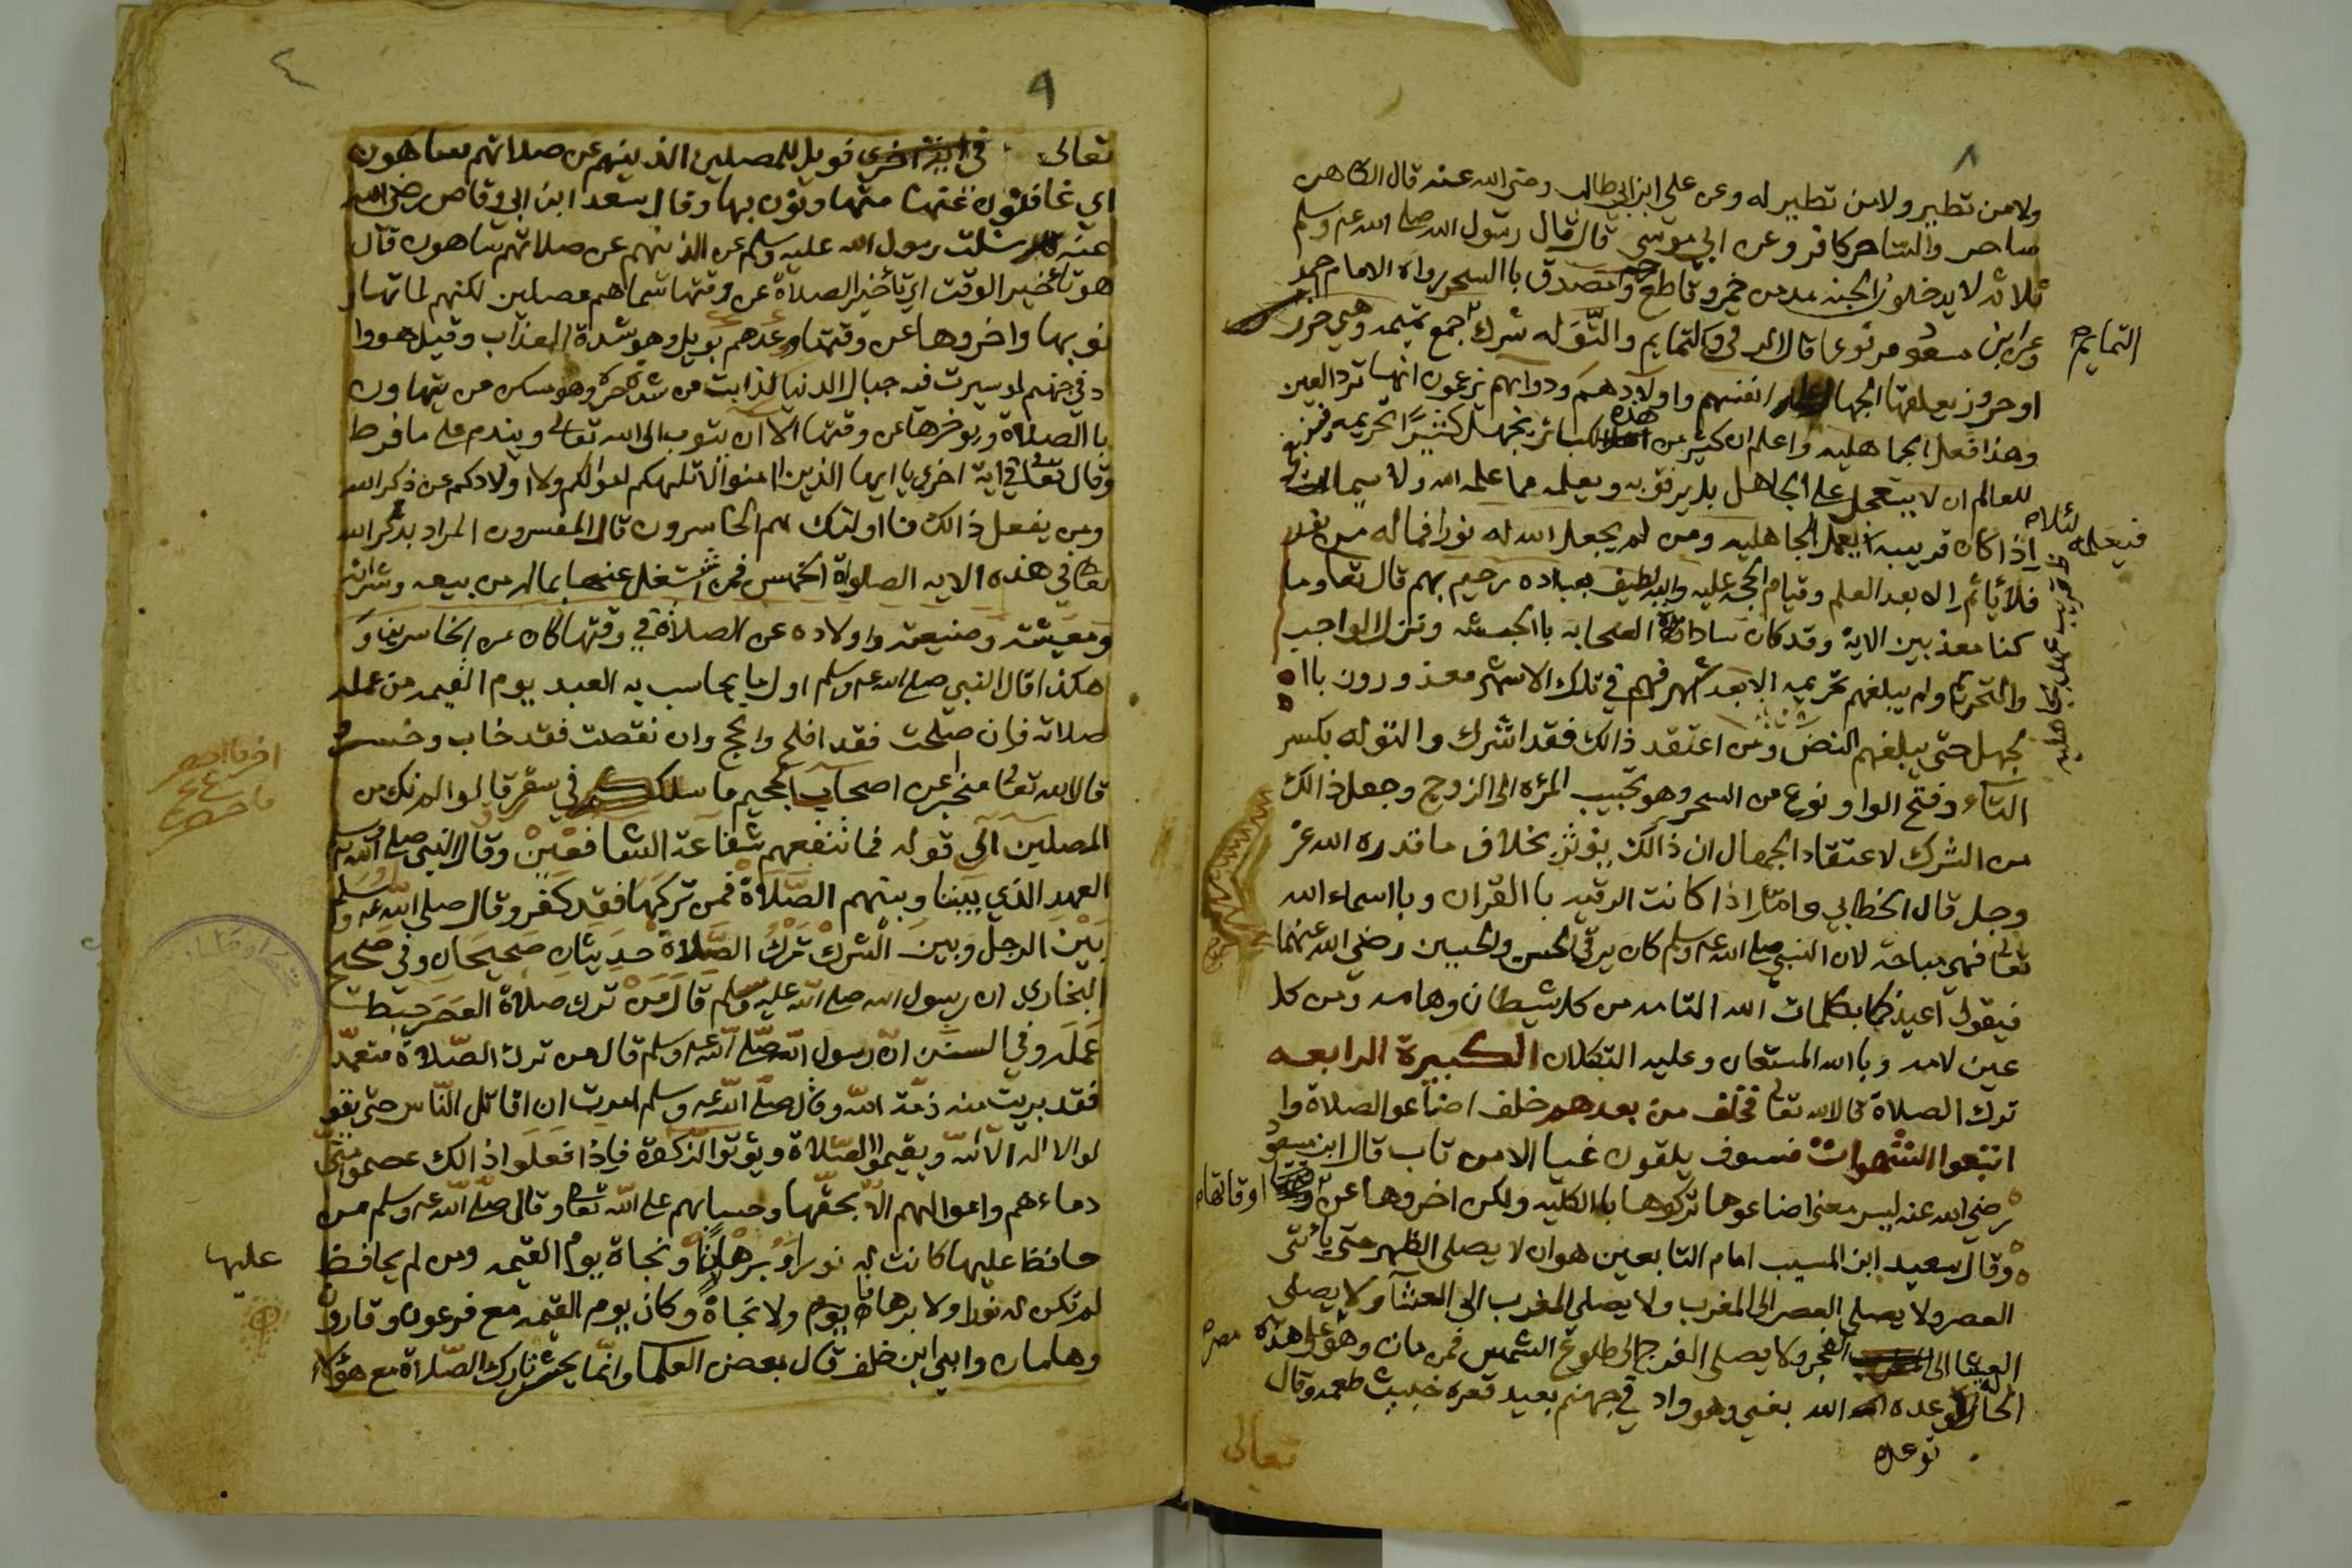 ٨
ولا من تطير ولا من تطير له وعن علي ابن ابي طالب رضي الله عنه قال الكاهن
ساحر والساحر كافر وعن ابي موسى قال قال رسول الله صلى الله عليه وسلم
ثلاثه لا يدخلون الجنه مدمن خمر وقاطع رحم ومصدق باالسحر رواه الامام حمد
وعن ابن مسعود مرفوعا قال الرقى والتمايم والتوله شرك جمع تميمه وهي خرز
التمايم
او حروز يعلقها الجهال على انفسهم واولادهم ودوابهم يزعمون انها ترد العين
وهذا فعل الجاهليه واعلم ان كثير من هذه الكبائر يجهل كثير تحريمه
للعالم ان لا يستعجل على الجاهل بل يرفق به ويعلمه مما علمه الله ولا سيما
اذا كان قريب بعمل الجاهليه ومن لم يجعل الله له نورا فما له من نور
فيعلمه لئلا
فلا يأثم الا بعد العلم وقيام الحجه عليه والله لطيف بعباده رحيم بهم قال تعا وما
كنا معذبين الاية وقد كان سادات الصحابه باالحبشه وتنزل الواجب
والتحريم ولم يبلغهم تحريمه الا بعد اشهر فهم في تلك الاشهر معذورون باا
لجهل حتى يبلغهم النص ومن اعتقد ذالك فقد اشرك والتوله بكسر
التاء وفتح الواو نوع من السحر وهو تحبيب المرئه الى الزوج وجعل ذالك
من الشرك لاعتقاد الجهال ان ذالك يؤثر بخلاف ما قدره الله عز
وجل قال الخطابي واما اذا كانت الرقيه باالقران وباسماء الله
تعالى فهي مباحة لان النبي صلى الله عليه وسلم كان يرقي الحسن والحسين رضي الله عنهما
فيقول اعيذكما بكلمات الله التامه من كل شيطان وهامه ومن كل
عين لامه وباالله المستعان وعليه التكلان الكبيرة الرابعه
ترك الصلاة قال الله تعالى فخلف من بعدهم خلف اضاعوا الصلاة وا
اتبعوا الشهوات فسوف يلقون غيا الا من تاب قال ابن مسعود
رضي الله عنه ليس معنى اضاعوها تركوها باالكليه ولكن اخروها عن اوقاتها
وقال سعيد ابن المسيب امام التابعين هو ان لا يصلي الظهر حتى يأتي
العصر ولا يصلي العصر الى المغرب ولا يصلي المغرب الى العشآ ولا يصلي
العشا الى الفجر ولا يصلي الفجر الى طلوع الشمس فمن مات وهو على هذه
الحاله وعده الله بغي وهو واد في جهنم بعيد قعره خبيث طعمه وقال
توعده
تعالى
٩
٤
تعالى فويل للمصلين الذينهم عن صلاتهم ساهون
اي غافلون عنها متهاونون بها وقال سعد ابن ابي وقاص رضي الله
عنه سئلت رسول الله عليه وسلم عن الذينهم عن صلاتهم ساهون قال
هو تأخير الوقت اي تأخير الصلاة عن وقتها سماهم مصلين لكنهم لما تهاو
نو بها واخروها عن وقتها وعدهم بويل وهو شدة العذاب وقيل هو وا
د في جهنم لو سيرت فيه جبال الدنيا لذابت من شدة حره وهو مسكن من يتهاون
باالصلاة ويوخرها عن وقتها الا ان يتوب الى الله تعالى ويندم على ما فرط
وقال تعالى في اية اخرى يا ايها الذين امنوا لا تلهكم اموالكم ولا اولادكم عن ذكر الله
ومن يفعل ذالك فا اولئك هم الخاسرون قال المفسرون المراد بذكر الله
تعا في هذه الايه الصلواة الخمس فمن اشتغل عنها بماله من بيعه وشرائه
ومعيشته وضيعته واولاده عن الصلاة في وقتها كان من الخاسرين و
هكذا قال النبي صلى الله عليه وسلم اول ما يحاسب به العبد يوم القيمه من عمله
صلاته فإن صلحت فقد افلح وانجح وان نقصت فقد خاب وخسر
قال الله تعا مخبر عن اصحاب الجحيم ما سلككم في سقر قالوا لم نك من
المصلين الى قوله فما تنفعهم شفاعة الشافعين وقال النبي صلى الله عليه وسلم
العهد الذي بيننا وبينهم الصلاة فمن تركها فقد كفر وقال صلى الله عليه وسلم
بين الرجل وبين الشرك ترك الصلاة حديثان صحيحان وفي صحيح
البخاري ان رسول الله صلى الله عليه وسلم قال من ترك صلاة العصر حبط
عمله وفي السنن ان رسول الله صلى الله عليه وسلم قال من ترك الصلاة متعمد
فقد بريت منه ذمة الله وقال صلى الله عليه وسلم امرت ان اقاتل الناس حتى يقو
لوا لا اله الا الله ويقيموا الصلاة ويؤتوا الزكوة فإذا فعلوا ذالك عصموا مني
دماءهم واموالهم الا بحقها وحسابهم على الله تعا وقال صلى الله عليه وسلم من
حافظ عليها كانت له نورا وبرهانا ونجاة يوم القيمه ومن لم يحافظ
عليها
لم تكن له نورا ولا برهانا ولا نجاة وكان يوم القيمه مع فرعون وقارون
وهامان وابي ابن خلف قال بعض العلما وانما يحشر تارك الصلاة مع هؤلاء